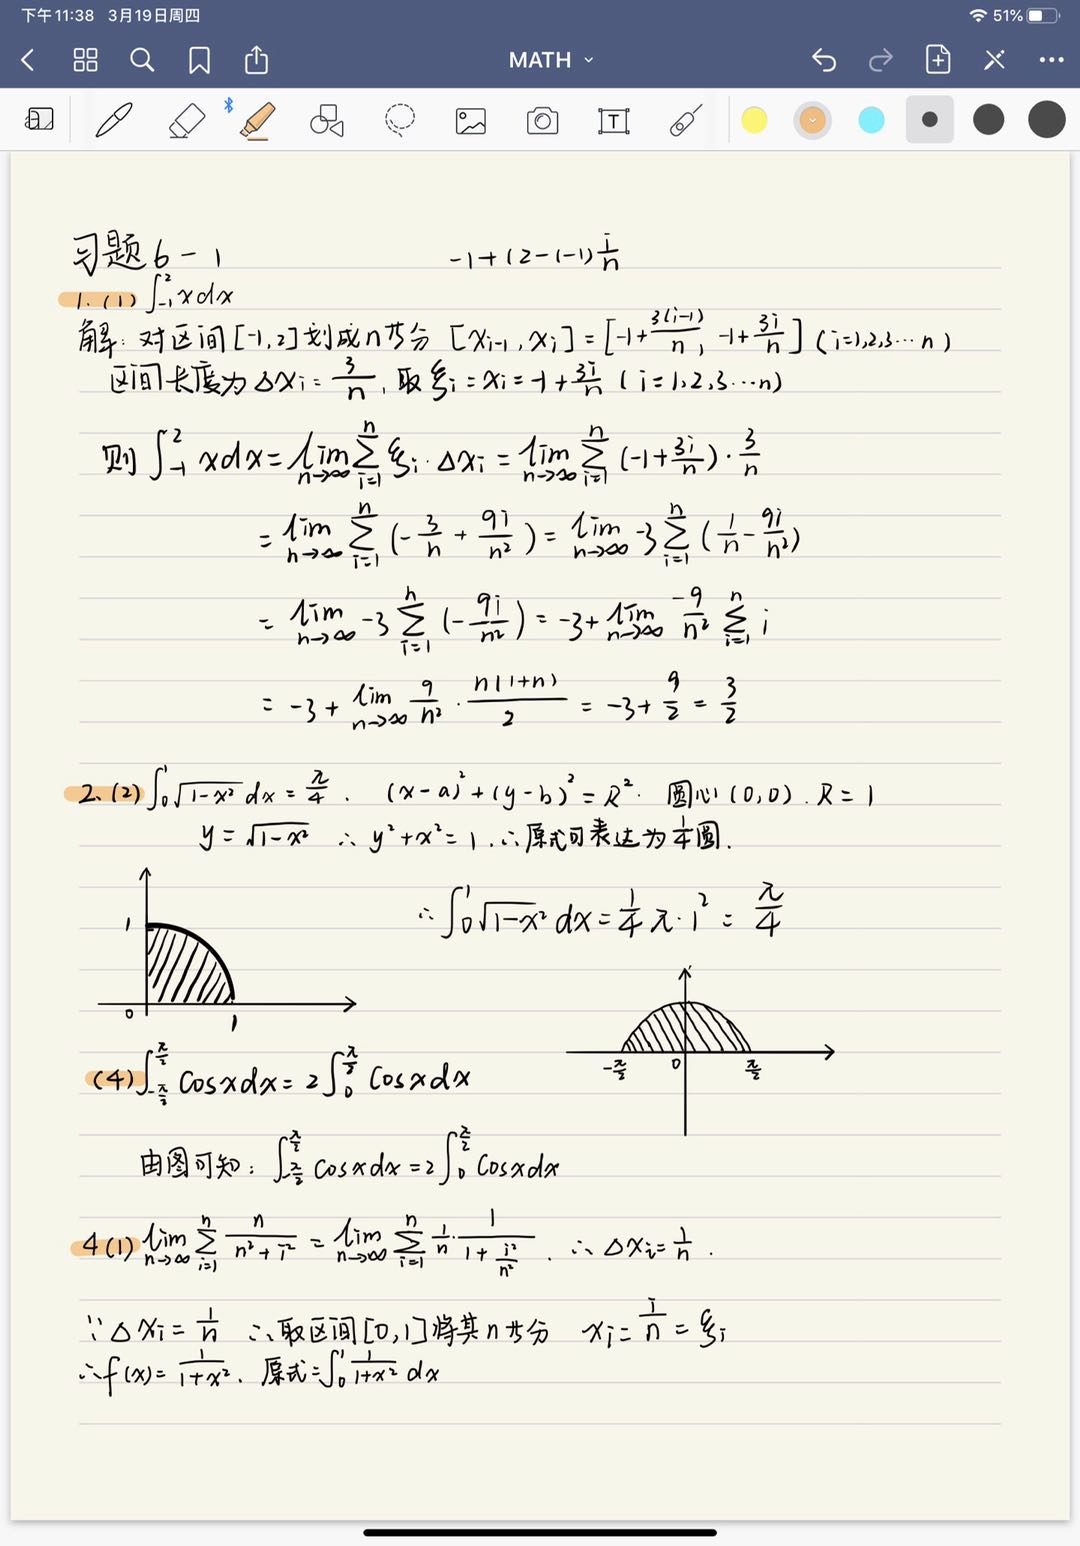 下午11:38 3月19日周四 51%
MATH
T
习题6-1 -1+(2-(-1)i/n
1.(1) ∫_{-1}^{2} xdx
解:对区间[-1,2]划成n等分 [x_{i-1}, x_i]=[-1+3(i-1)/n, -1+3i/n] (i=1,2,3…n)
区间长度为Δx_i=3/n,取ξ_i=x_i=-1+3i/n (i=1,2,3…n)
则∫_{-1}^{2} xdx=lim_{n→∞} Σ_{i=1}^{n} ξ_i·Δx_i=lim_{n→∞} Σ_{i=1}^{n} (-1+3i/n)·3/n
=lim_{n→∞} Σ_{i=1}^{n} (-3/n+9i/n²)=lim_{n→∞} -3 Σ_{i=1}^{n} (1/n-9i/n²)
=lim_{n→∞} -3 Σ_{i=1}^{n} (-9i/n²)=-3+lim_{n→∞} -9/n² Σ_{i=1}^{n} i
=-3+lim_{n→∞} 9/n²·n(1+n)/2=-3+9/2=3/2
2.(2) ∫_{0}^{1} √(1-x²) dx=π/4. (x-a)²+(y-b)²=R². 圆心(0,0).R=1
y=√(1-x²) ∴y²+x²=1.∴原式可表达为1/4圆.
∴∫_{0}^{1} √(1-x²) dx=1/4π·1²=π/4
1
0
1
-π/2 0 π/2
(4)∫_{-π/2}^{π/2} cosxdx=2∫_{0}^{π/2} cosxdx
由图可知:∫_{-π/2}^{π/2} cosxdx=2∫_{0}^{π/2} cosxdx
4(1) lim_{n→∞} Σ_{i=1}^{n} n/(n²+i²)=lim_{n→∞} Σ_{i=1}^{n} 1/n·1/(1+i²/n²). ∴Δx_i=1/n.
∵Δx_i=1/n ∴取区间[0,1]将其n等分 x_i=i/n=ξ_i
∴f(x)=1/(1+x²). 原式=∫_{0}^{1} 1/(1+x²) dx